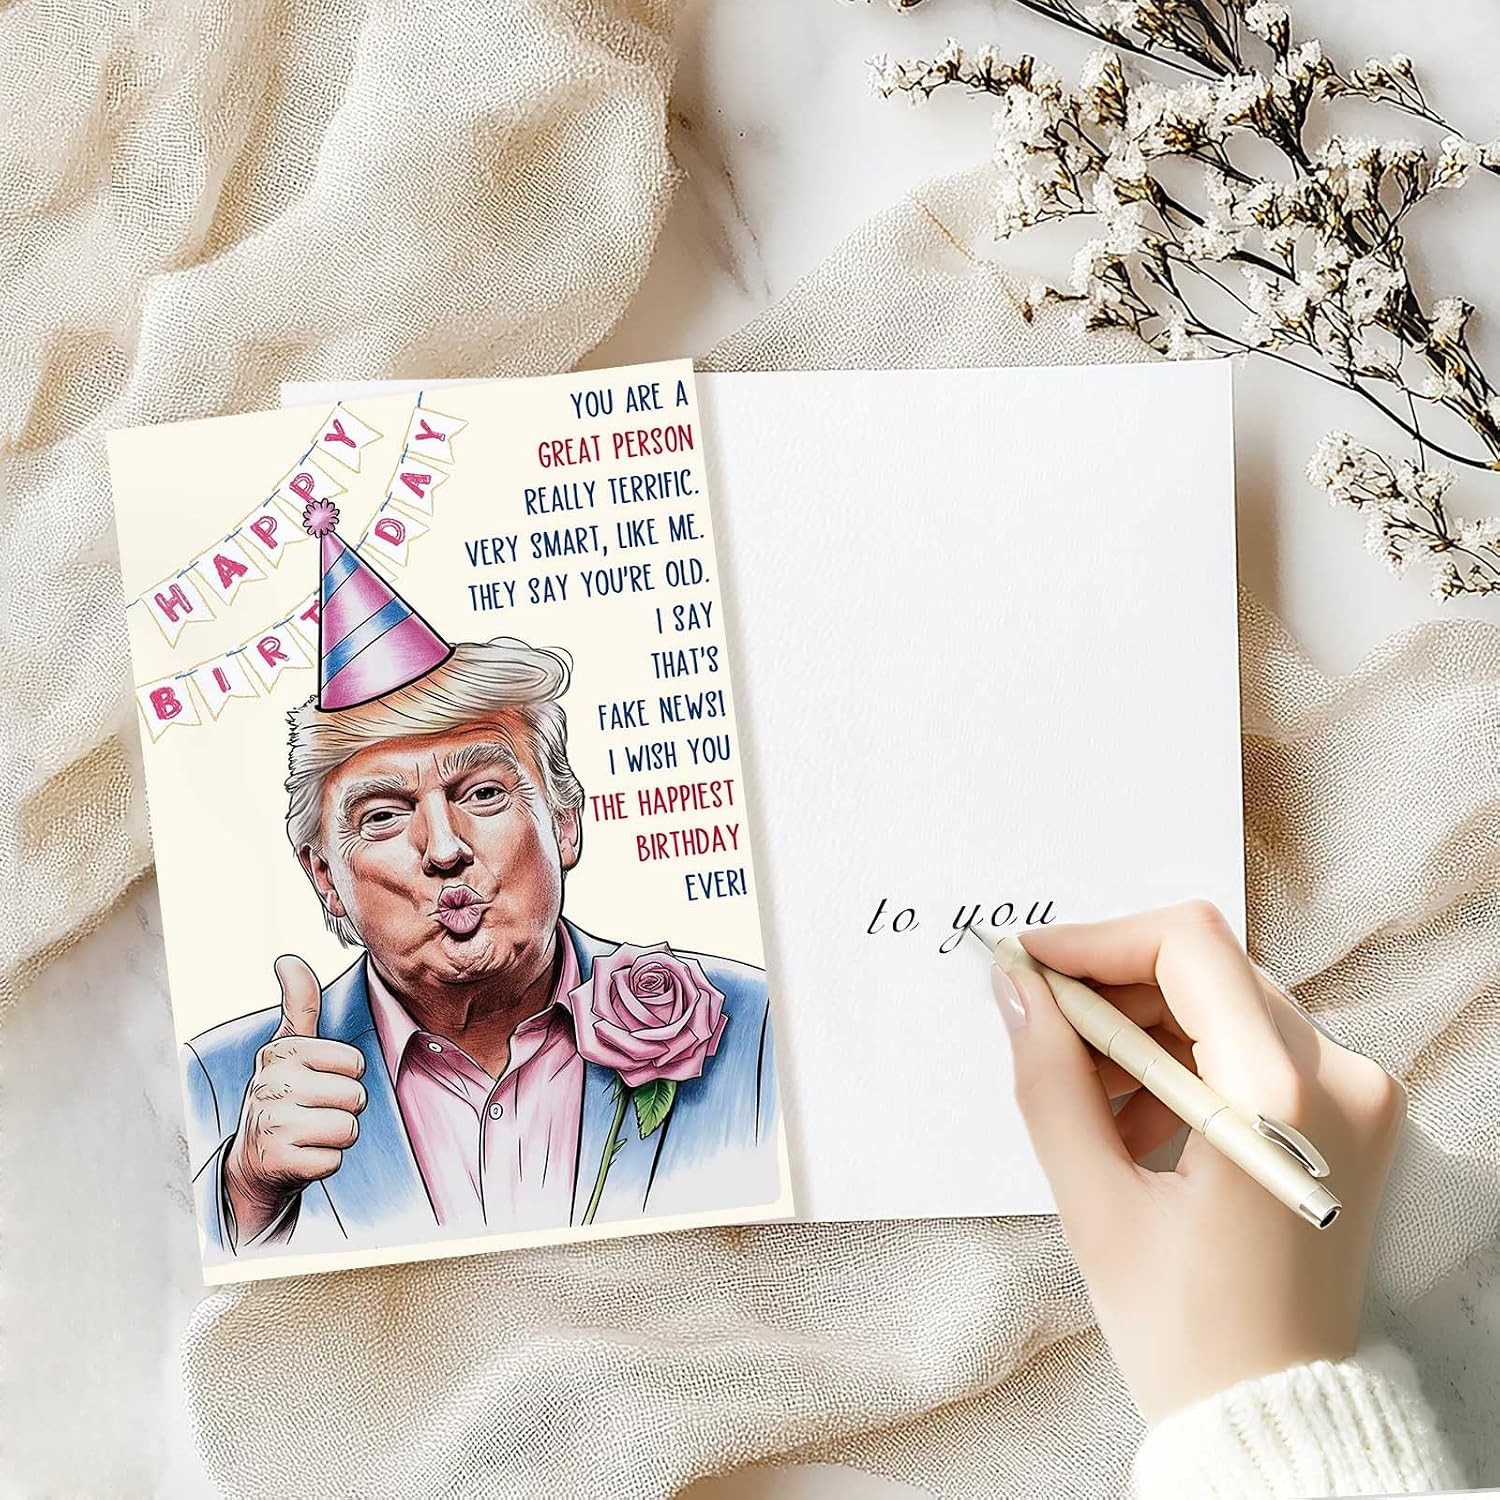 HAPPY
BIRTHDAY
YOU ARE A
GREAT PERSON
REALLY TERRIFIC.
VERY SMART, LIKE ME.
THEY SAY YOU'RE OLD.
I SAY
THAT'S
FAKE NEWS!
I WISH YOU
THE HAPPIEST
BIRTHDAY
EVER!
to you